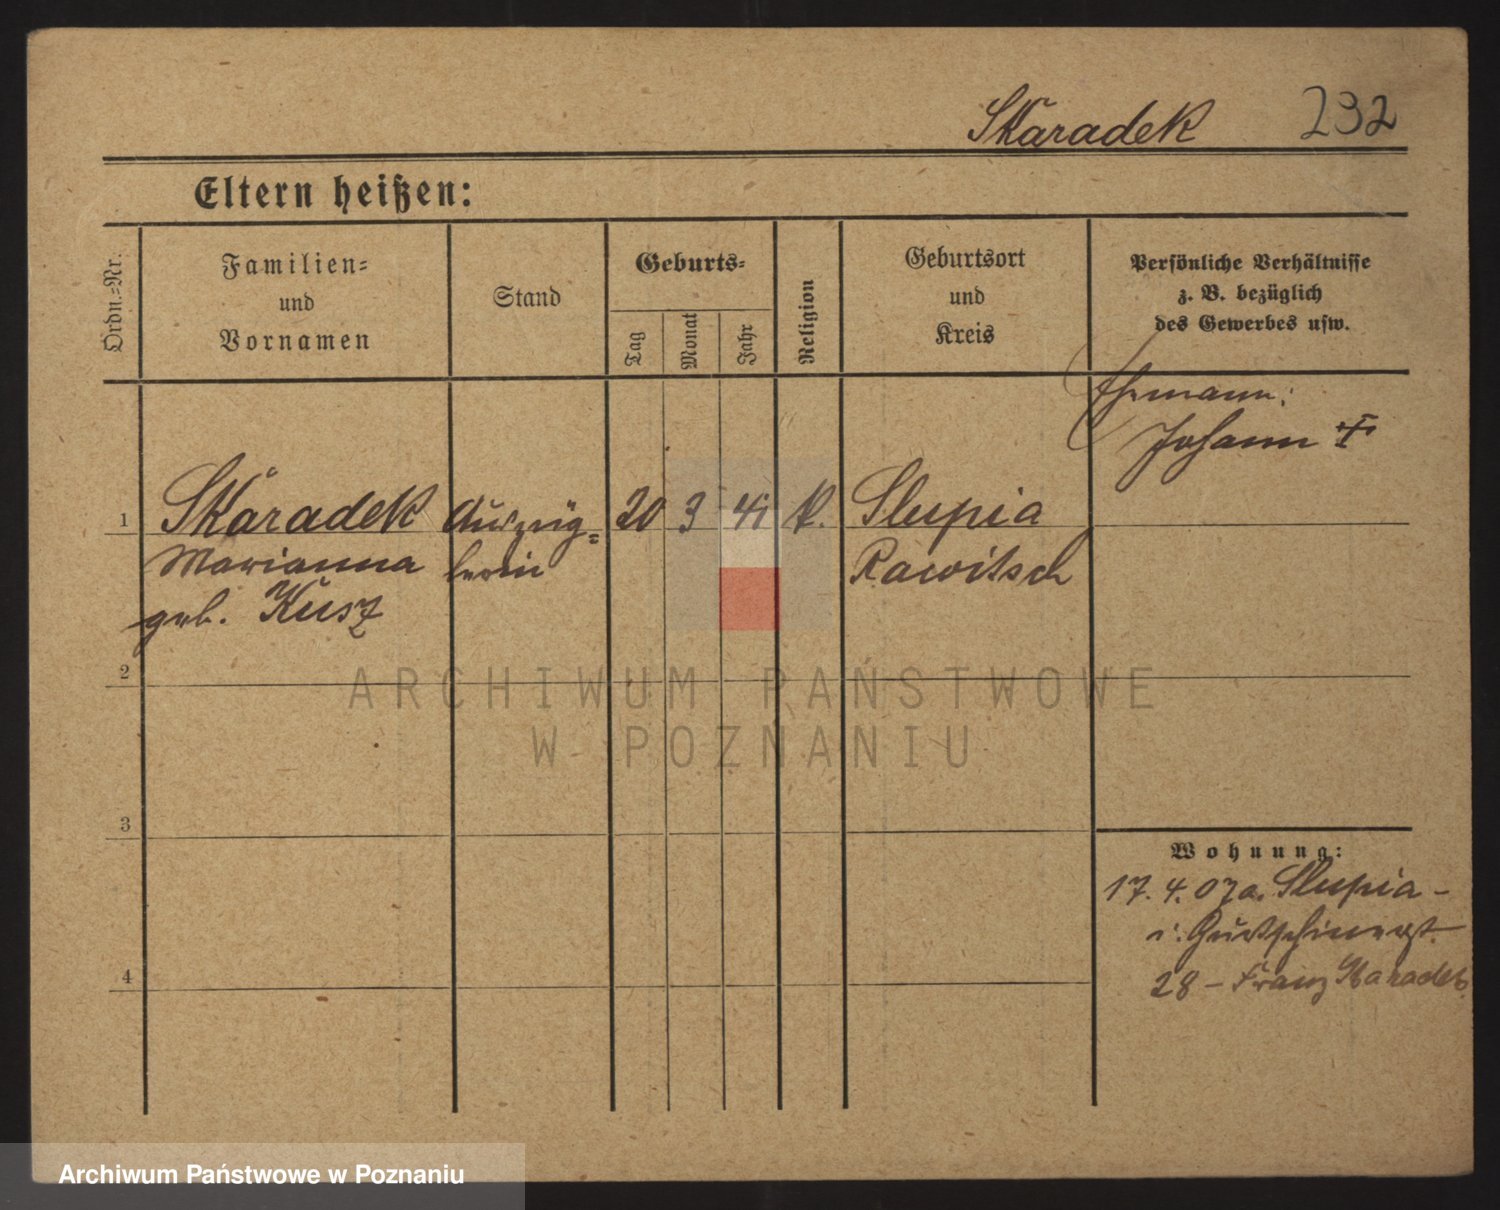 Skaradek 232
Eltern heißen:
Ordn.=Nr.
Familien=
und
Vornamen
Stand
Geburts=
Tag
Monat
Jahr
Religion
Geburtsort
und
Kreis
Persönliche Verhältnisse
z. B. bezüglich
des Gewerbes usw.
Ehemann:
Johann
1 Skaradek Auszüg= 20 3 41 k. Slupia
Marianna lerin Rawitsch
geb. Kusz
2
3
4
Wohnung:
17. 4. 07 a. Slupia -
28 - Franz Skaradek
ARCHIWUM PAŃSTWOWE
W POZNANIU
Archiwum Państwowe w Poznaniu